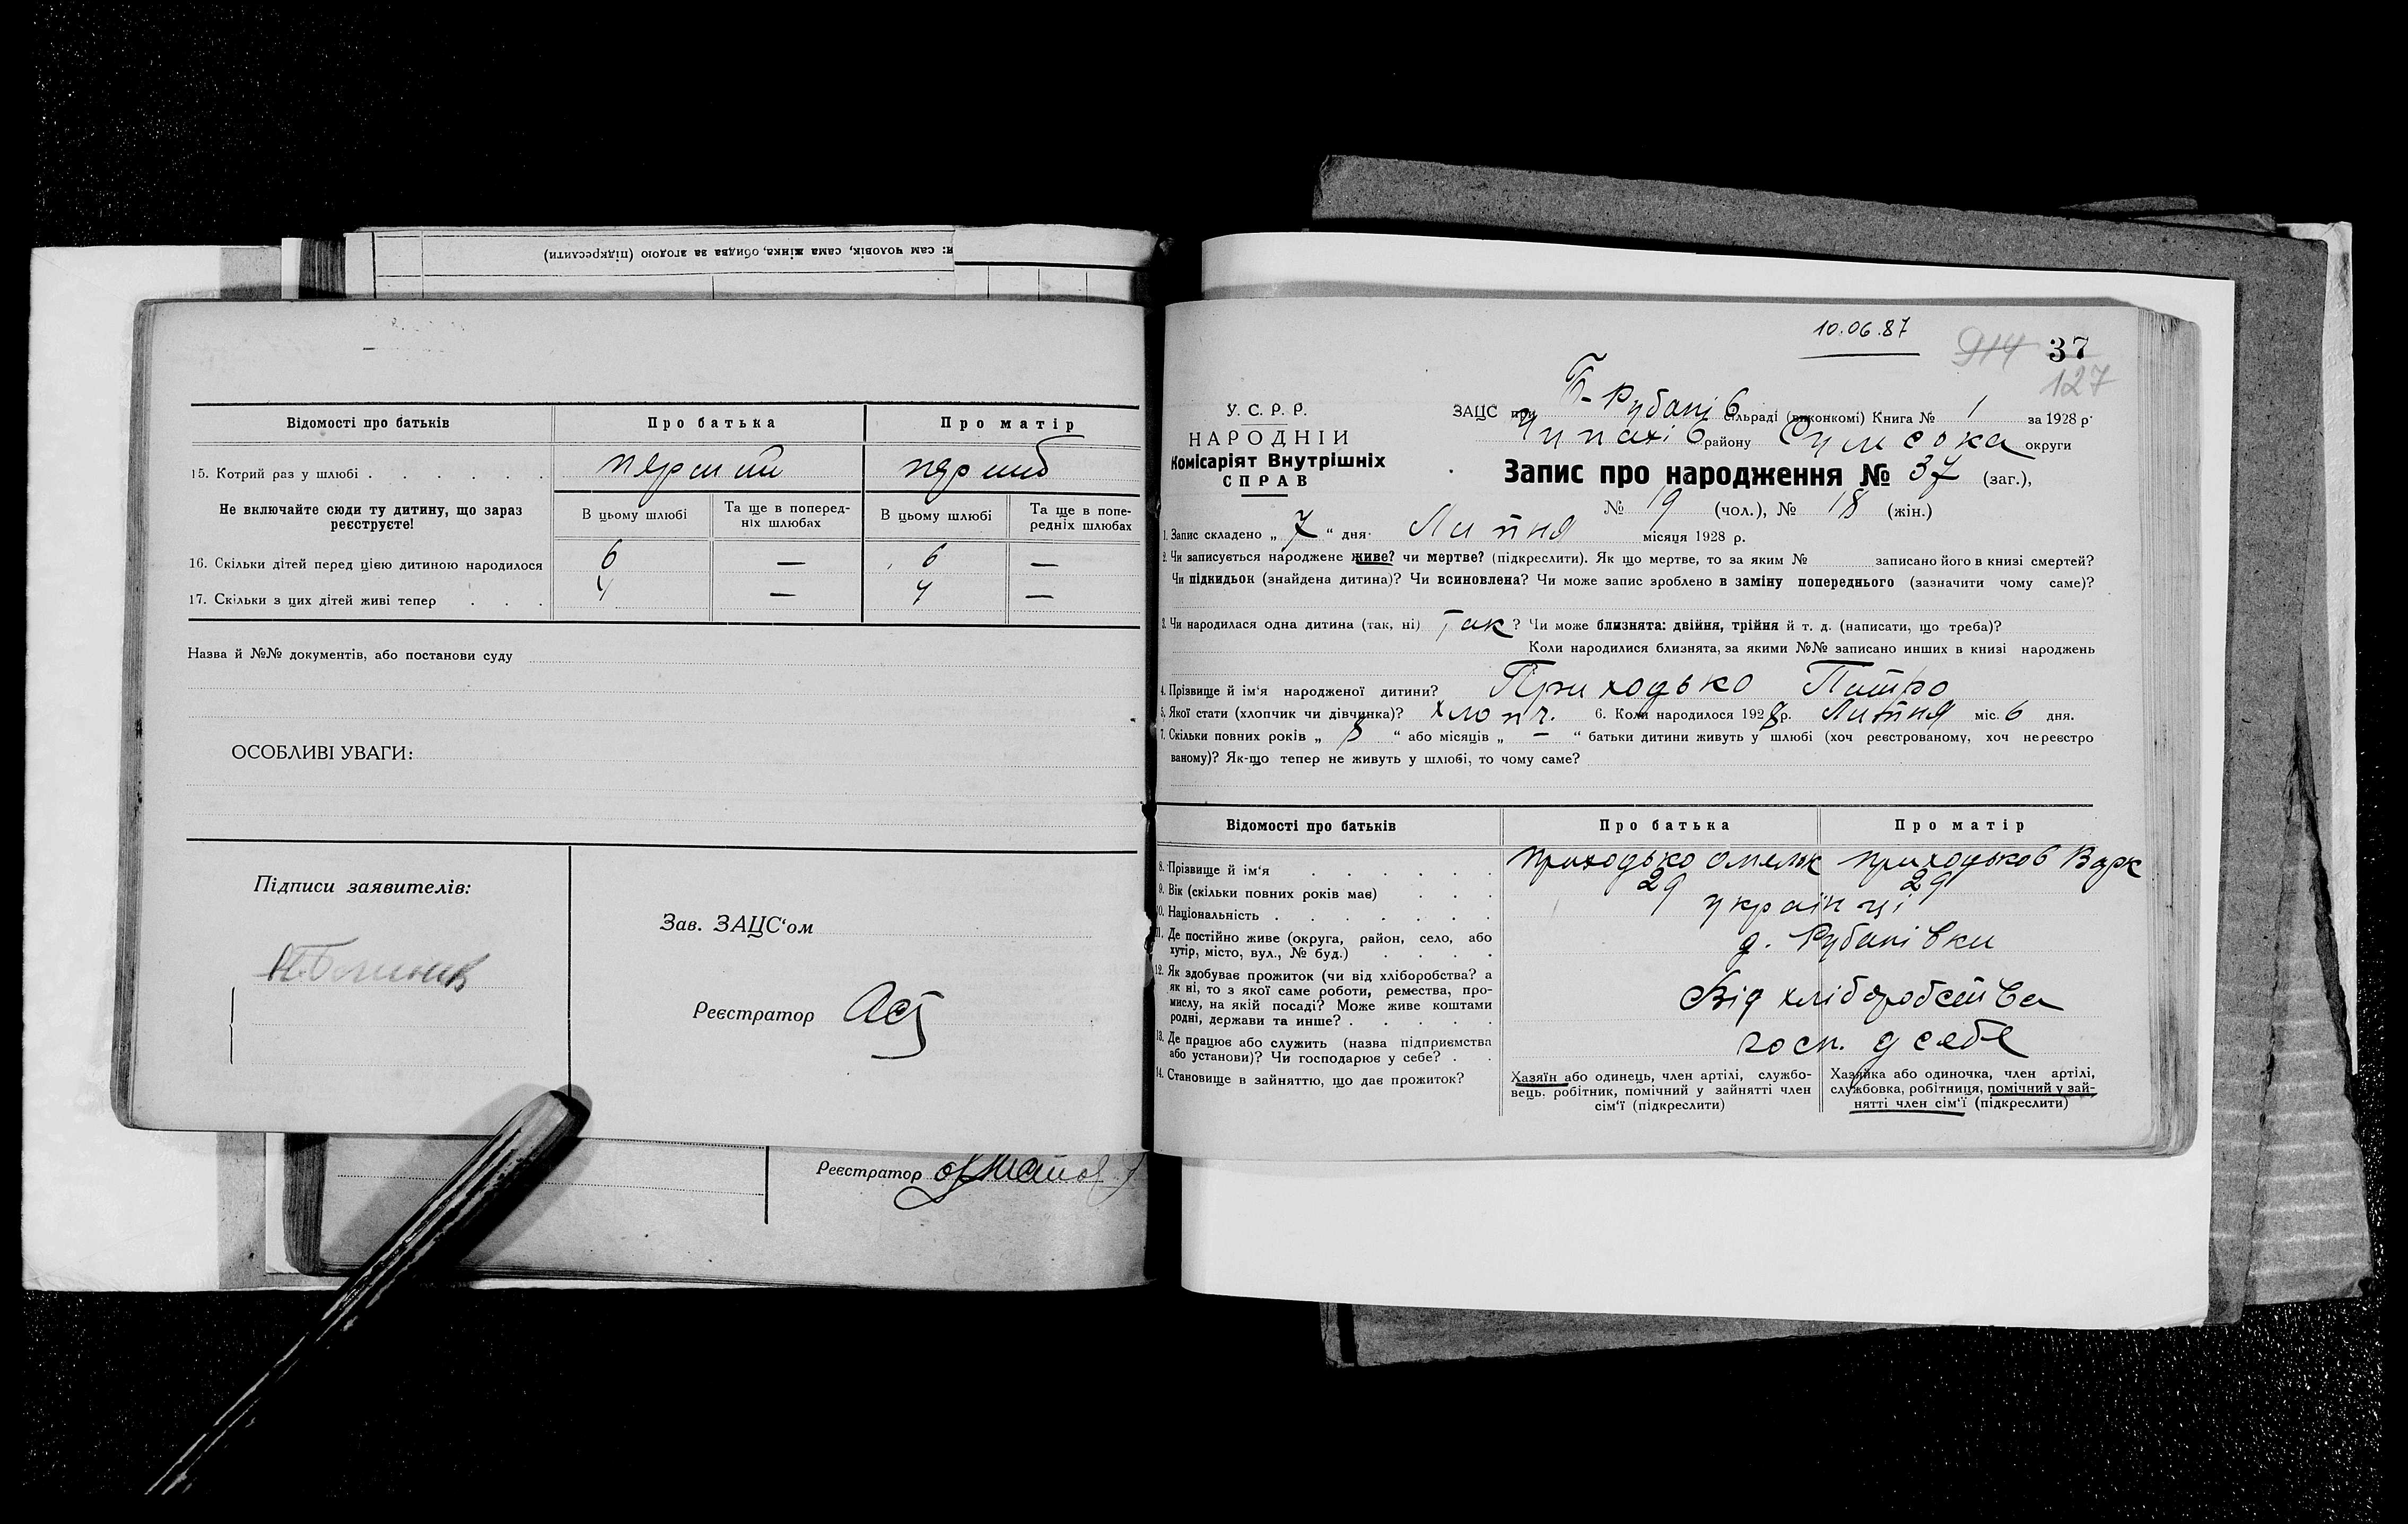 и: сам чоловік, сама жінка, обидва за згодою (підкреслити)
Відомості про батьків Про батька Про матір
15. Котрий раз у шлюбі . . . . . . перший перший
Не включайте сюди ту дитину, що зараз реєструєте!
В цьому шлюбі Та ще в поперед-ніх шлюбах В цьому шлюбі Та ще в попе-редніх шлюбах
16. Скільки дітей перед цією дитиною народилося 6 — 6 —
17. Скільки з цих дітей живі тепер . . . 4 — 4 —
Назва й №№ документів, або постанови суду
ОСОБЛИВІ УВАГИ:
Підписи заявителів:
Зав. ЗАЦС‘ом
Реєстратор
Реєстратор
10.06.87
914 37
127
У. С. Р. Р.
НАРОДНІЙ
Комісаріят Внутрішніх
СПРАВ
ЗАЦС при Б-Рубанів сільраді (виконкомі) Книга № 1 за 1928 р.
Чупахів району Сумська округи
Запис про народження № 37 (заг.),
№ 19 (чол.), № 18 (жін.)
1. Запис складено „ 7 “ дня Липня місяця 1928 р.
2. Чи записується народжене живе? чи мертве? (підкреслити). Як що мертве, то за яким № записано його в книзі смертей?
Чи підкидьок (знайдена дитина)? Чи всиновлена? Чи може запис зроблено в заміну попереднього (зазначити чому саме)?
3. Чи народилася одна дитина (так, ні) Так ? Чи може близнята: двійня, трійня й т. д. (написати, що треба)?
Коли народилися близнята, за якими №№ записано инших в книзі народжень
4. Прізвище й ім‘я народженої дитини? Приходько Питро
5. Якої стати (хлопчик чи дівчинка)? хлопч. 6. Коли народилося 1928 р. Липня міс. 6 дня.
7. Скільки повних років „ 8 “ або місяців „ — “ батьки дитини живуть у шлюбі (хоч реєстрованому, хоч нереєстро
ваному)? Як-що тепер не живуть у шлюбі, то чому саме?
Відомості про батьків Про батька Про матір
8. Прізвище й ім‘я . . . . . . Приходько Омельк Приходьков Варк
9. Вік (скільки повних років має) . . . 29 29
10. Національність . . . . . . . українці
11. Де постійно живе (округа, район, село, або
хутір, місто, вул., № буд.) . . . . д. Рубанівки
12. Як здобуває прожиток (чи від хліборобства? а
як ні, то з якої саме роботи, ремества, про-
мислу, на якій посаді? Може живе коштами
родні, держави та инше? . . . . . Від хліборобства
13. Де працює або служить (назва підприємства
або установи)? Чи господарює у себе? . . госп. у себе
14. Становище в зайняттю, що дає прожиток?
Хазяїн або одинець, член артілі, службо-
вець. робітник, помічний у зайнятті член
сім‘ї (підкреслити)
Хазяйка або одиночка, член артілі,
службовка, робітниця, помічний у зай-
нятті член сім‘ї (підкреслити)